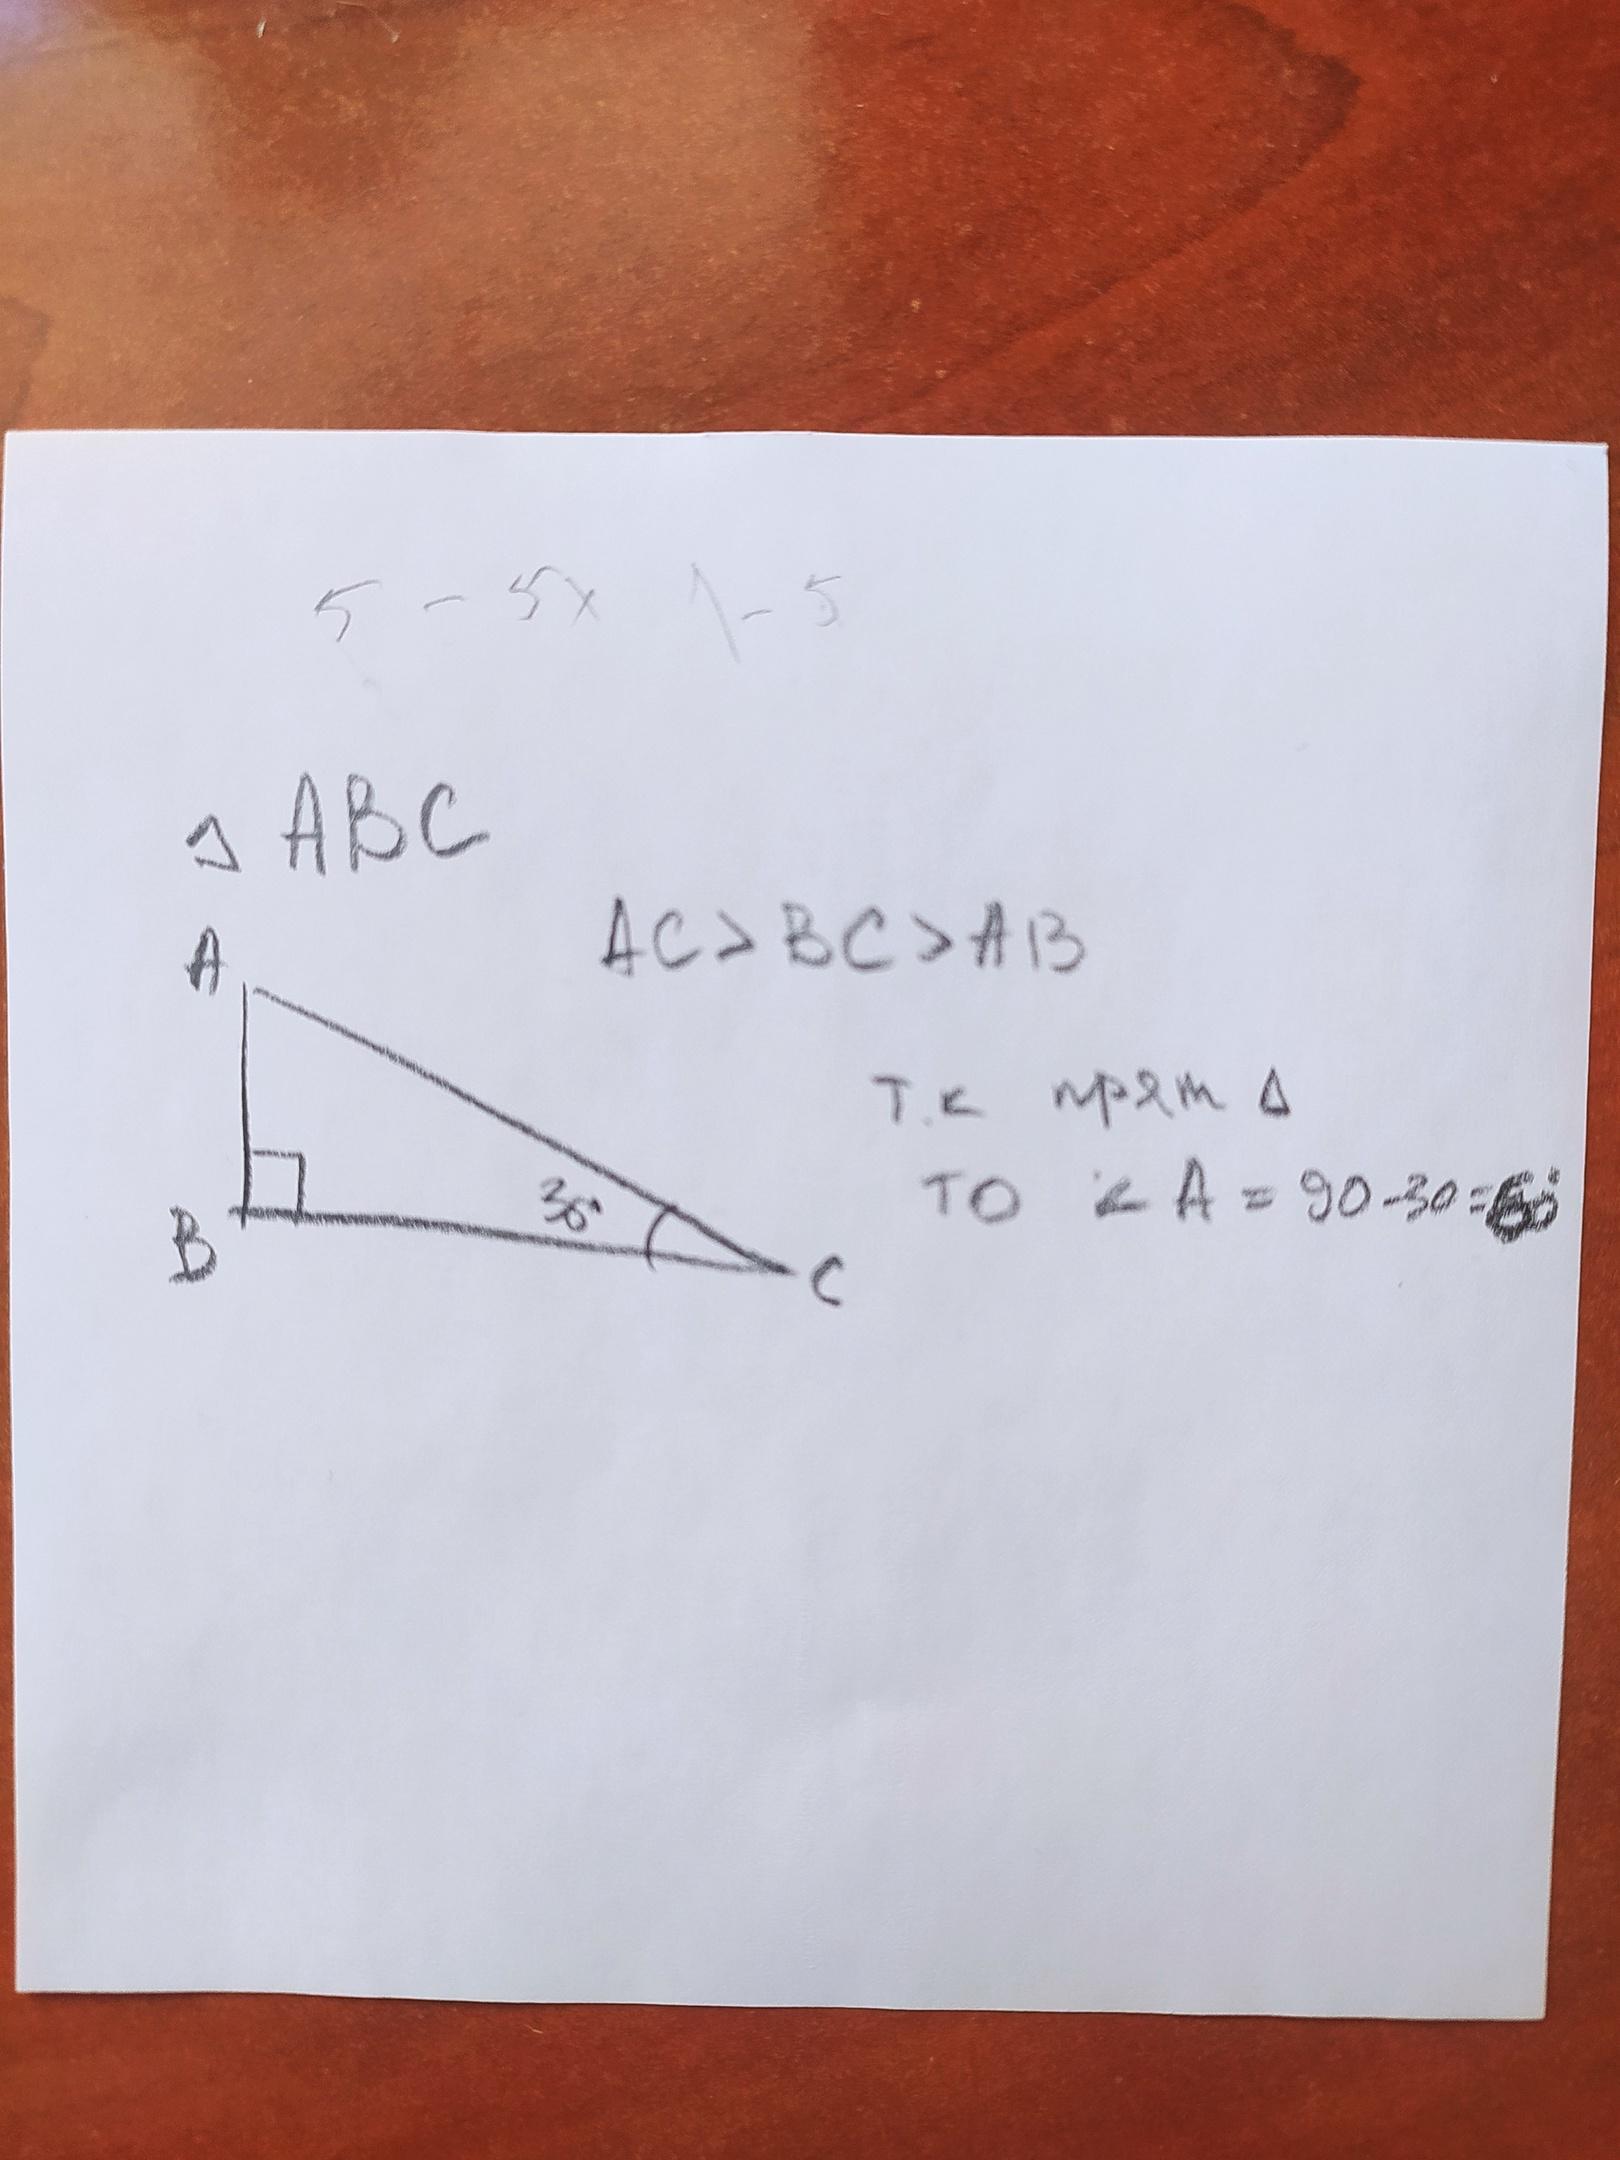 5 - 5x
- 5
△ ABC
AC > BC > AB
A
т.к прям △
то ∠ A = 90 - 30 = 60°
30°
B
C